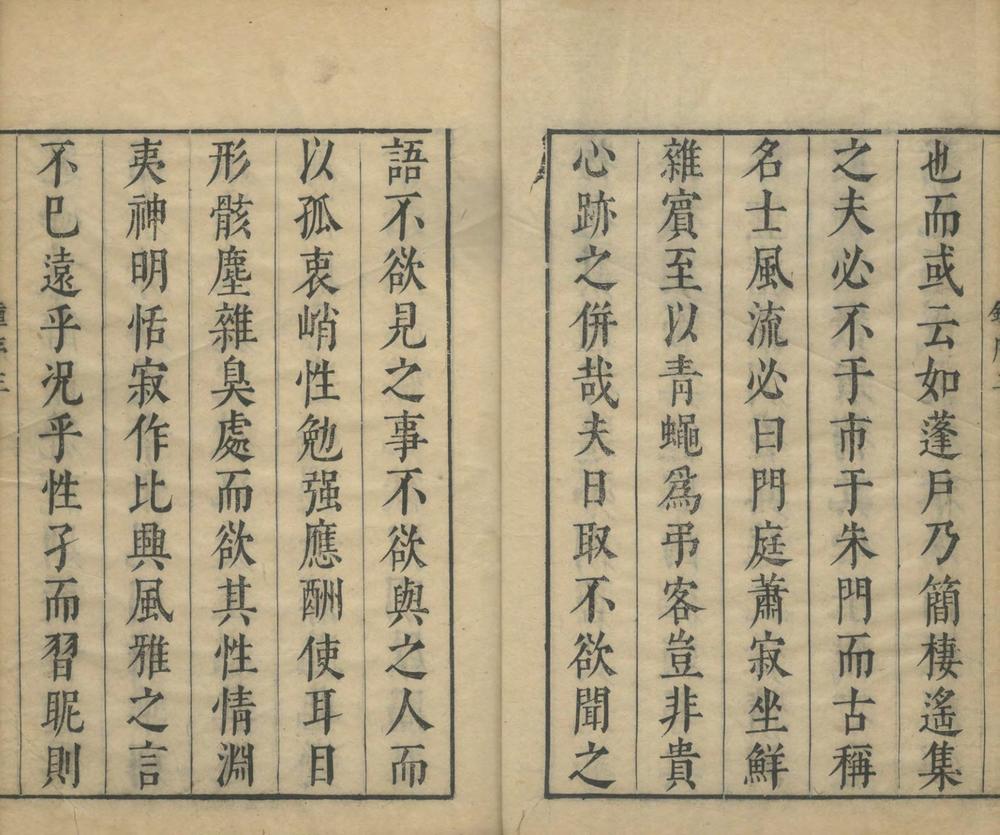 也而或云如蓬戶乃簡棲遙集
之夫必不于市于朱門而古稱
名士風流必曰門庭蕭寂坐鮮
雜賓至以青蠅爲弔客豈非貴
心跡之併哉夫日取不欲聞之
語不欲見之事不欲與之人而
以孤衷峭性勉强應酬使耳目
形骸塵雜臭處而欲其性情淵
夷神明恬寂作比興風雅之言
不已遠乎況乎性孑而習昵則